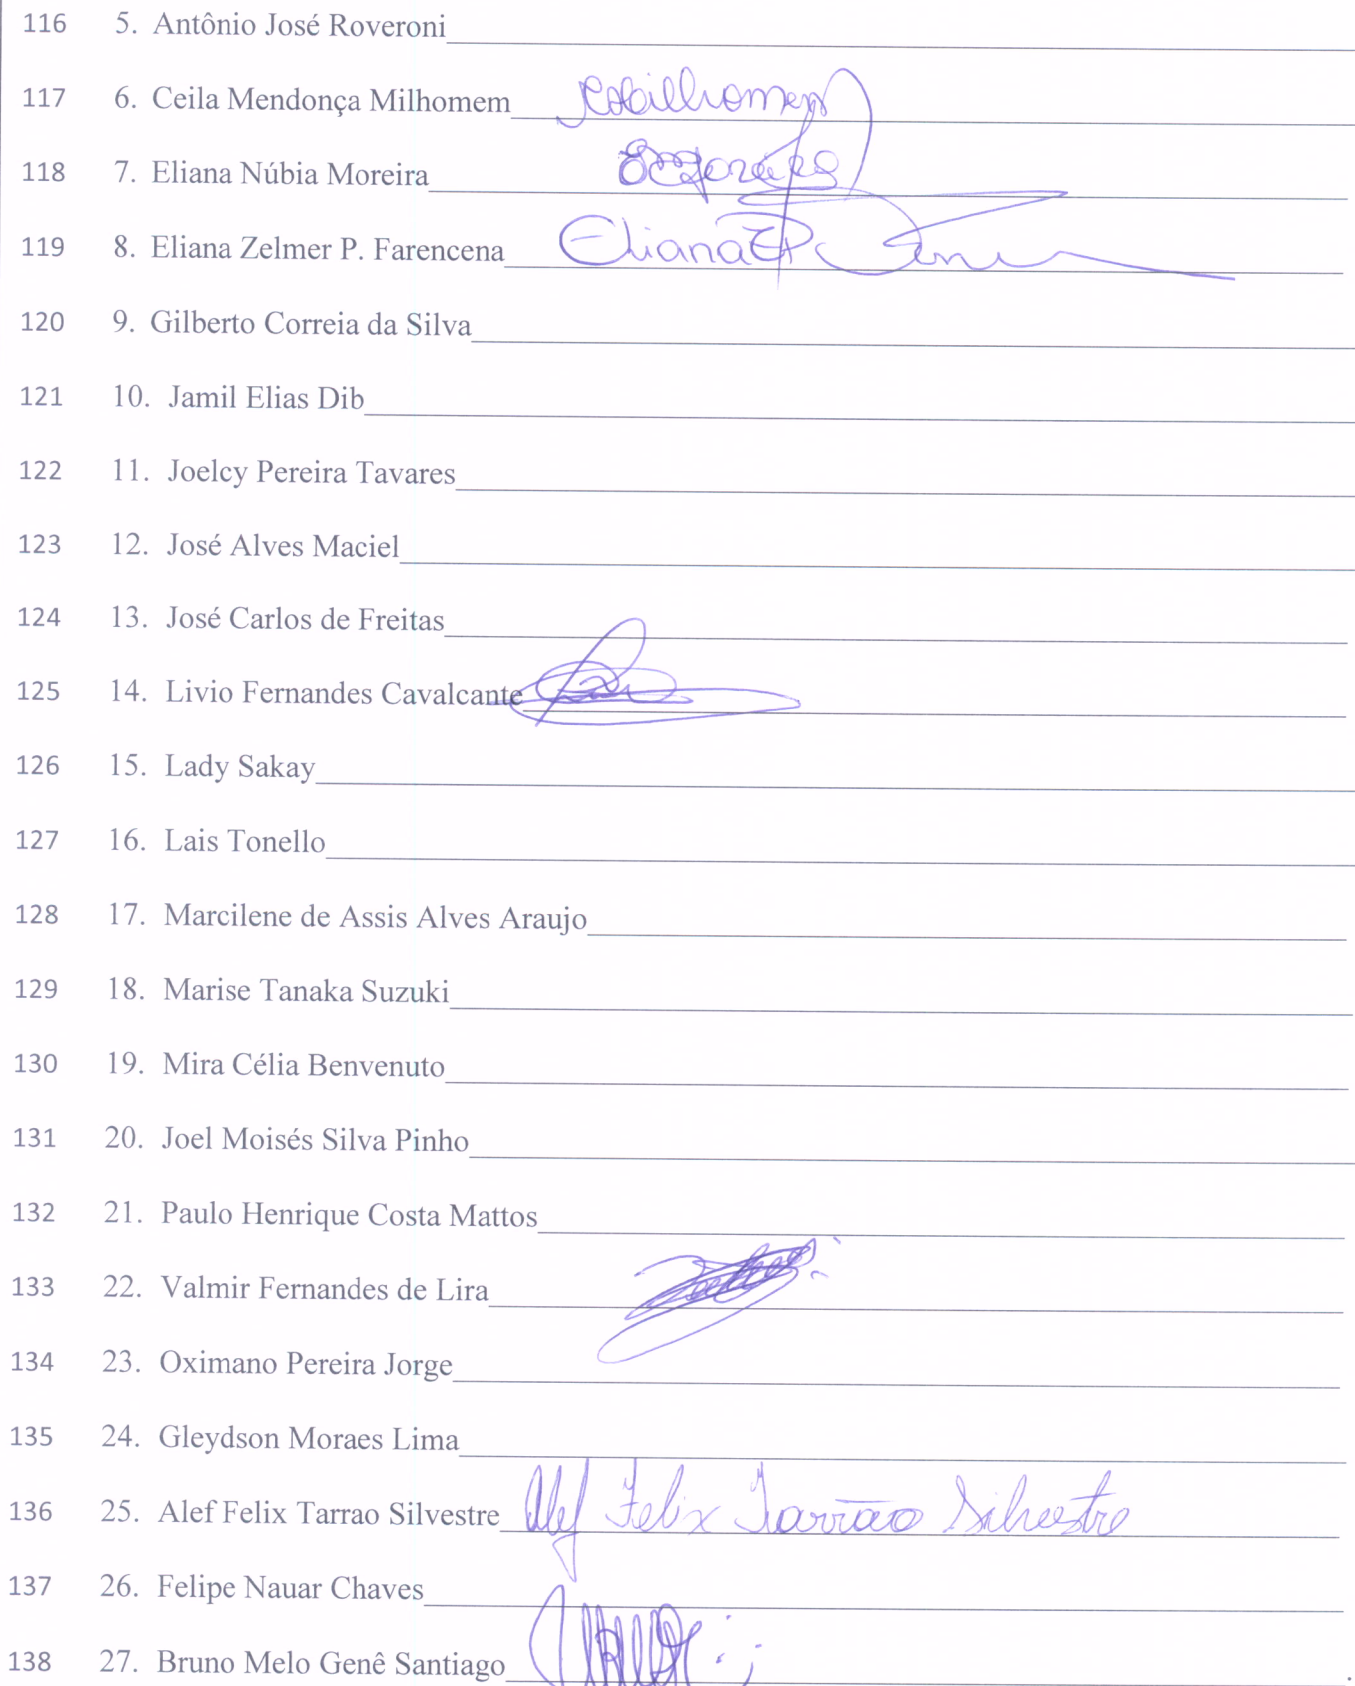 116 5. Antônio José Roveroni
117 6. Ceila Mendonça Milhomem
118 7. Eliana Núbia Moreira
119 8. Eliana Zelmer P. Farencena Eliana
120 9. Gilberto Correia da Silva
121 10. Jamil Elias Dib
122 11. Joelcy Pereira Tavares
123 12. José Alves Maciel
124 13. José Carlos de Freitas
125 14. Livio Fernandes Cavalcante
126 15. Lady Sakay
127 16. Lais Tonello
128 17. Marcilene de Assis Alves Araujo
129 18. Marise Tanaka Suzuki
130 19. Mira Célia Benvenuto
131 20. Joel Moisés Silva Pinho
132 21. Paulo Henrique Costa Mattos
133 22. Valmir Fernandes de Lira
134 23. Oximano Pereira Jorge
135 24. Gleydson Moraes Lima
136 25. Alef Felix Tarrao Silvestre Alef Felix Tarrão Silvestre
137 26. Felipe Nauar Chaves
138 27. Bruno Melo Genê Santiago .